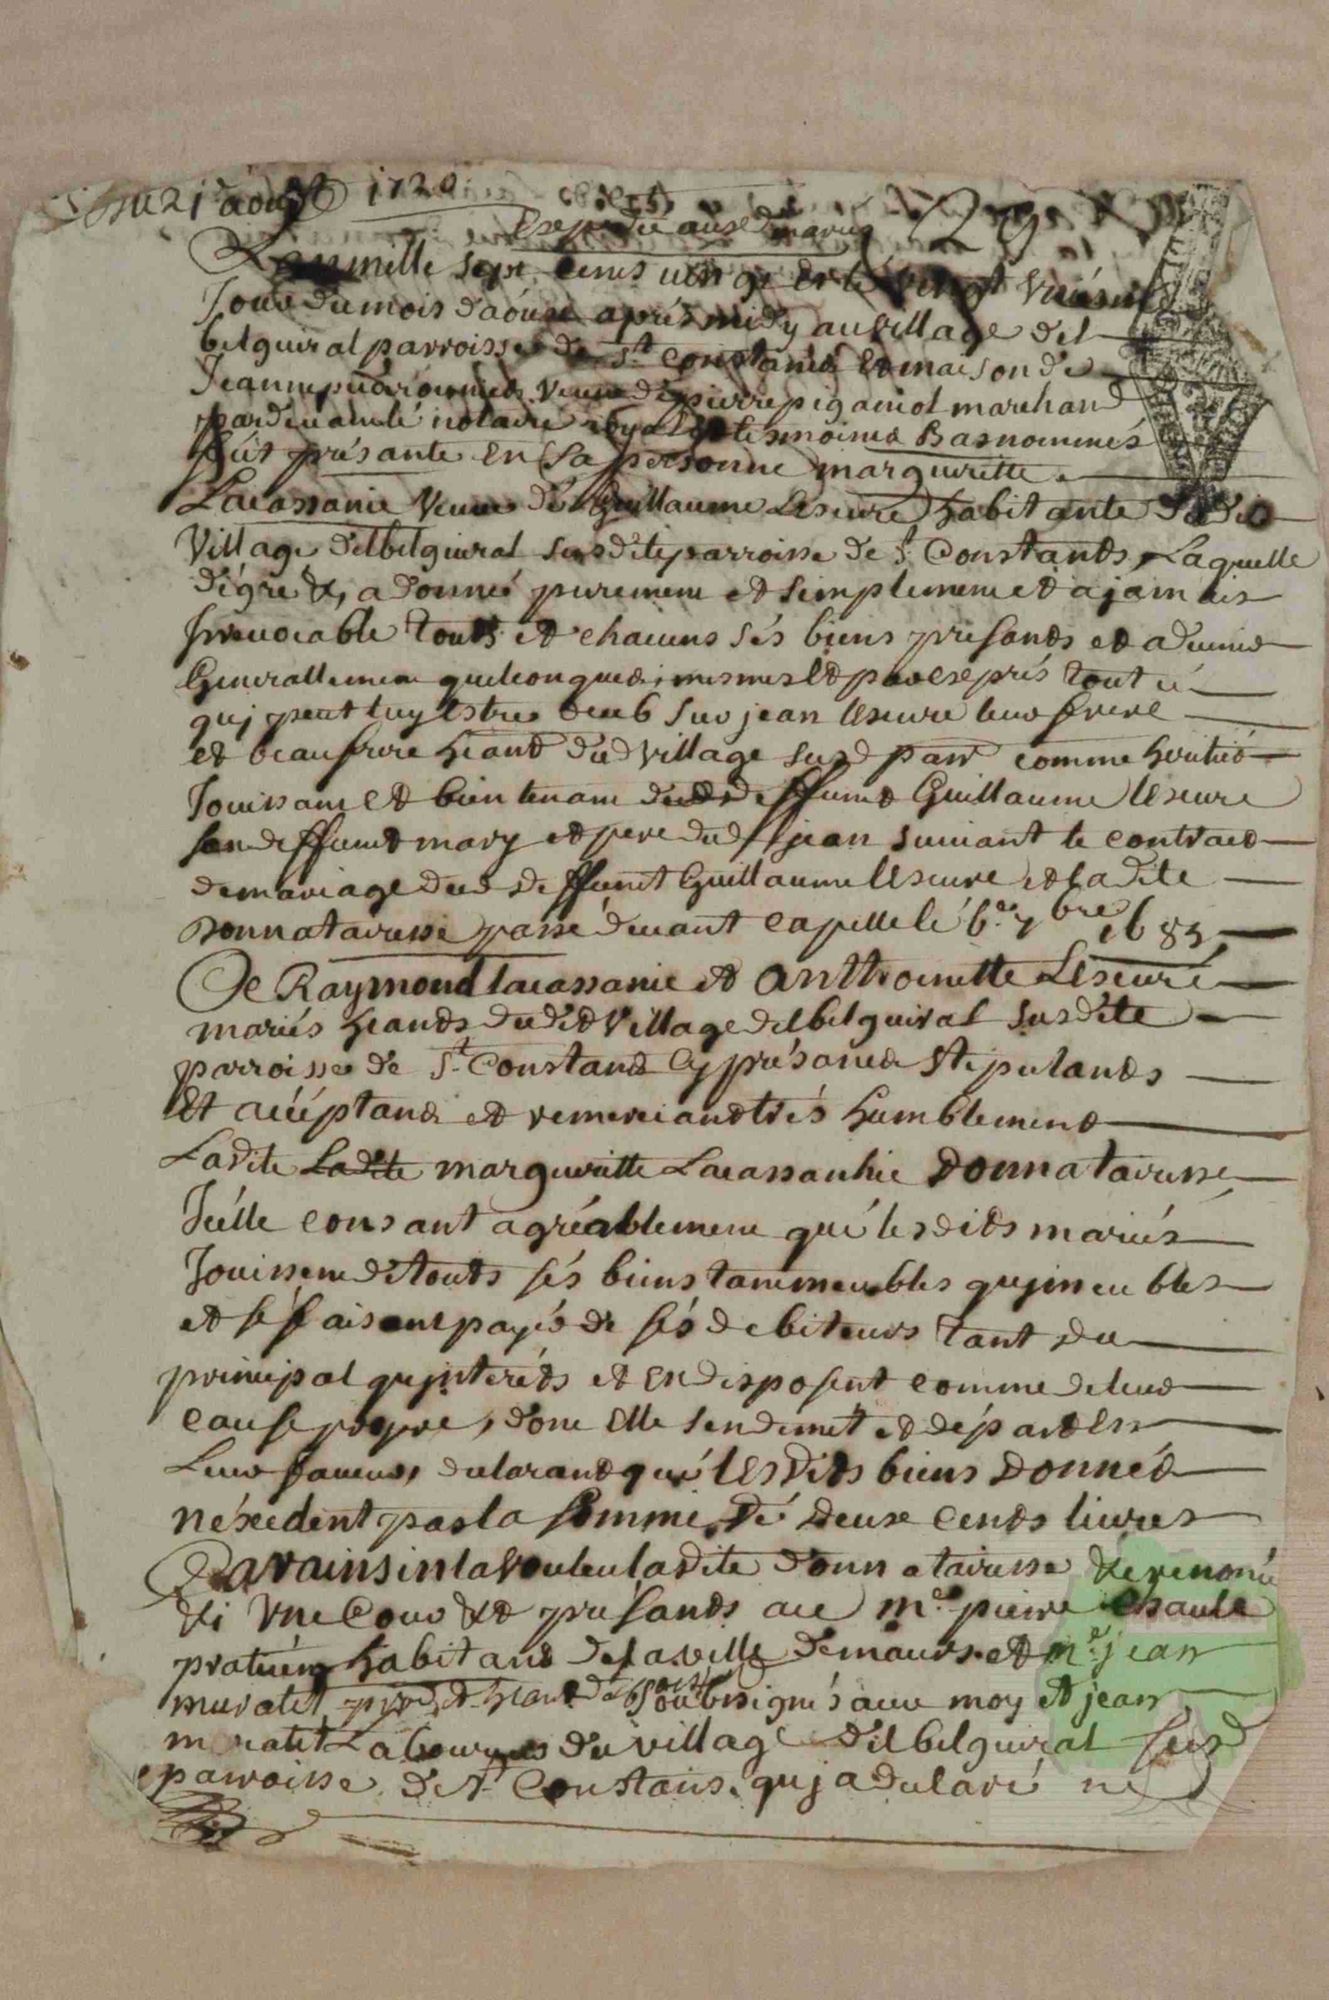 Du 21 aoust 1720
Expedié ausd mariés
129
L'an mille sept cents vingt et le vingt uniesme
Jour du mois d'aoust apres midy au village del
belguiral parroisse de St Constand et maison de
Jeanne veuve de pierre piganiol marchand
pardevant le notaire royal et tesmoins Basnommés
fust présante en sa personne margueritte
Lacassanie veuve de Guillaume Lescure habitante dudit
village delbelguiral susdite parroisse de St Constands, Laquelle
de gré &, a donné purement et simplement et a jamais
Irrevocable touts et chacuns sés biens presants et advenir
Generallement quelconques, mesmes et par exprés tout cé
quj peut luy estre deub sur jean lescure leur frere
et beaufrere heant dud village susd parr comme heritié
Jouissant et bien tenant dud deffunt Guillaume lescure
son deffunt mary et pere dud jean suivant le contract
demariage dud deffunt Guillaume lescure et ladite
donnataresse passé devant capelle lé 6e 7bre 1685,
De Raymond lacassanie et anthoinette Lescure
mariés heants dudit village delbelguiral susdite
parroisse de St Constand cy présants stipulants
et accéptans et remerciant trés humblement
Ladite ladite marguerite Lacassanhie donnataresse
Icélle consant agréablement qué lesdits mariés
Jouissent de touts sés biens tant meubles qu'jmeubles
et sé faisent payér de sés debiteurs tant du
principal qu'jnteréts et en disposent comme de leur
cause propre, donc elle sen demet et départ en
Leur faveur, declarant qué lesdits biens donnés
n'éxcedent pas la somme dé deux cents livres
Et ainsin la vouleu ladite donnataresse & renoncé
& une Cour &d présants ace me pierre Chaule
pratitién habitant de la ville de maurs et me jean
muratet soubsignés avec moy et jean
muratet Laboureur du village delbelguiral susd
parroisse de St Constans quj a declaré né